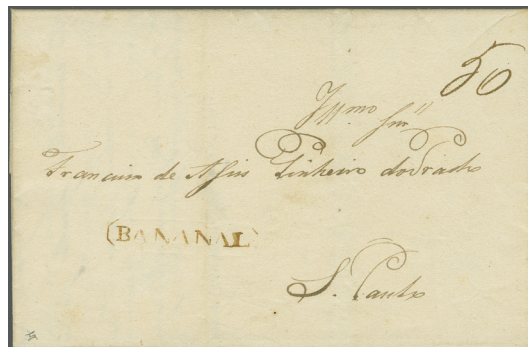 50
Illmo Snr
Francisco de Assis Pinheiro do Prado
(BANANAL)
S. Paulo